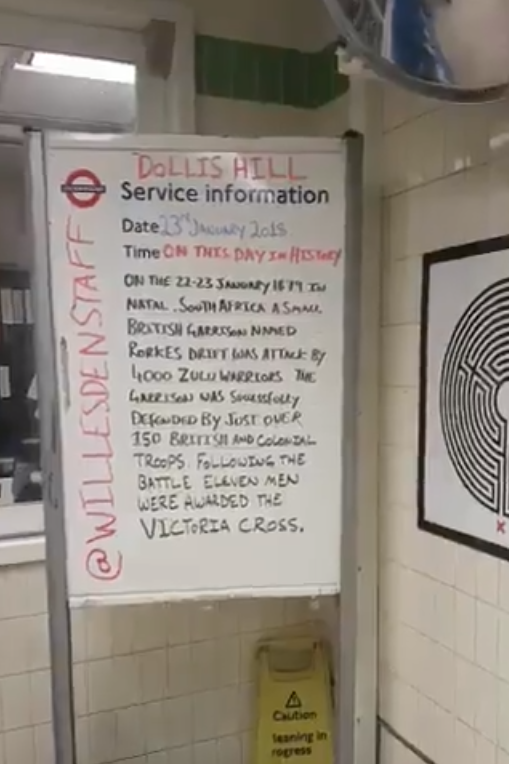 DOLLIS HILL
Service information
Date 23rd JANUARY 2018
Time ON THIS DAY IN HISTORY
ON THE 22-23 JANUARY 1879 IN
NATAL, SOUTH AFRICA A SMALL
BRITISH GARRISON NAMED
RORKES DRIFT WAS ATTACK BY
4000 ZULU WARRIORS THE
GARRISON WAS SUCESSFULLY
DEFENDED BY JUST OVER
150 BRITISH AND COLONIAL
TROOPS. FOLLOWING THE
BATTLE ELEVEN MEN
WERE AWARDED THE
VICTORIA CROSS.
@WILLESDENSTAFF
X
Caution
leaning in
rogress